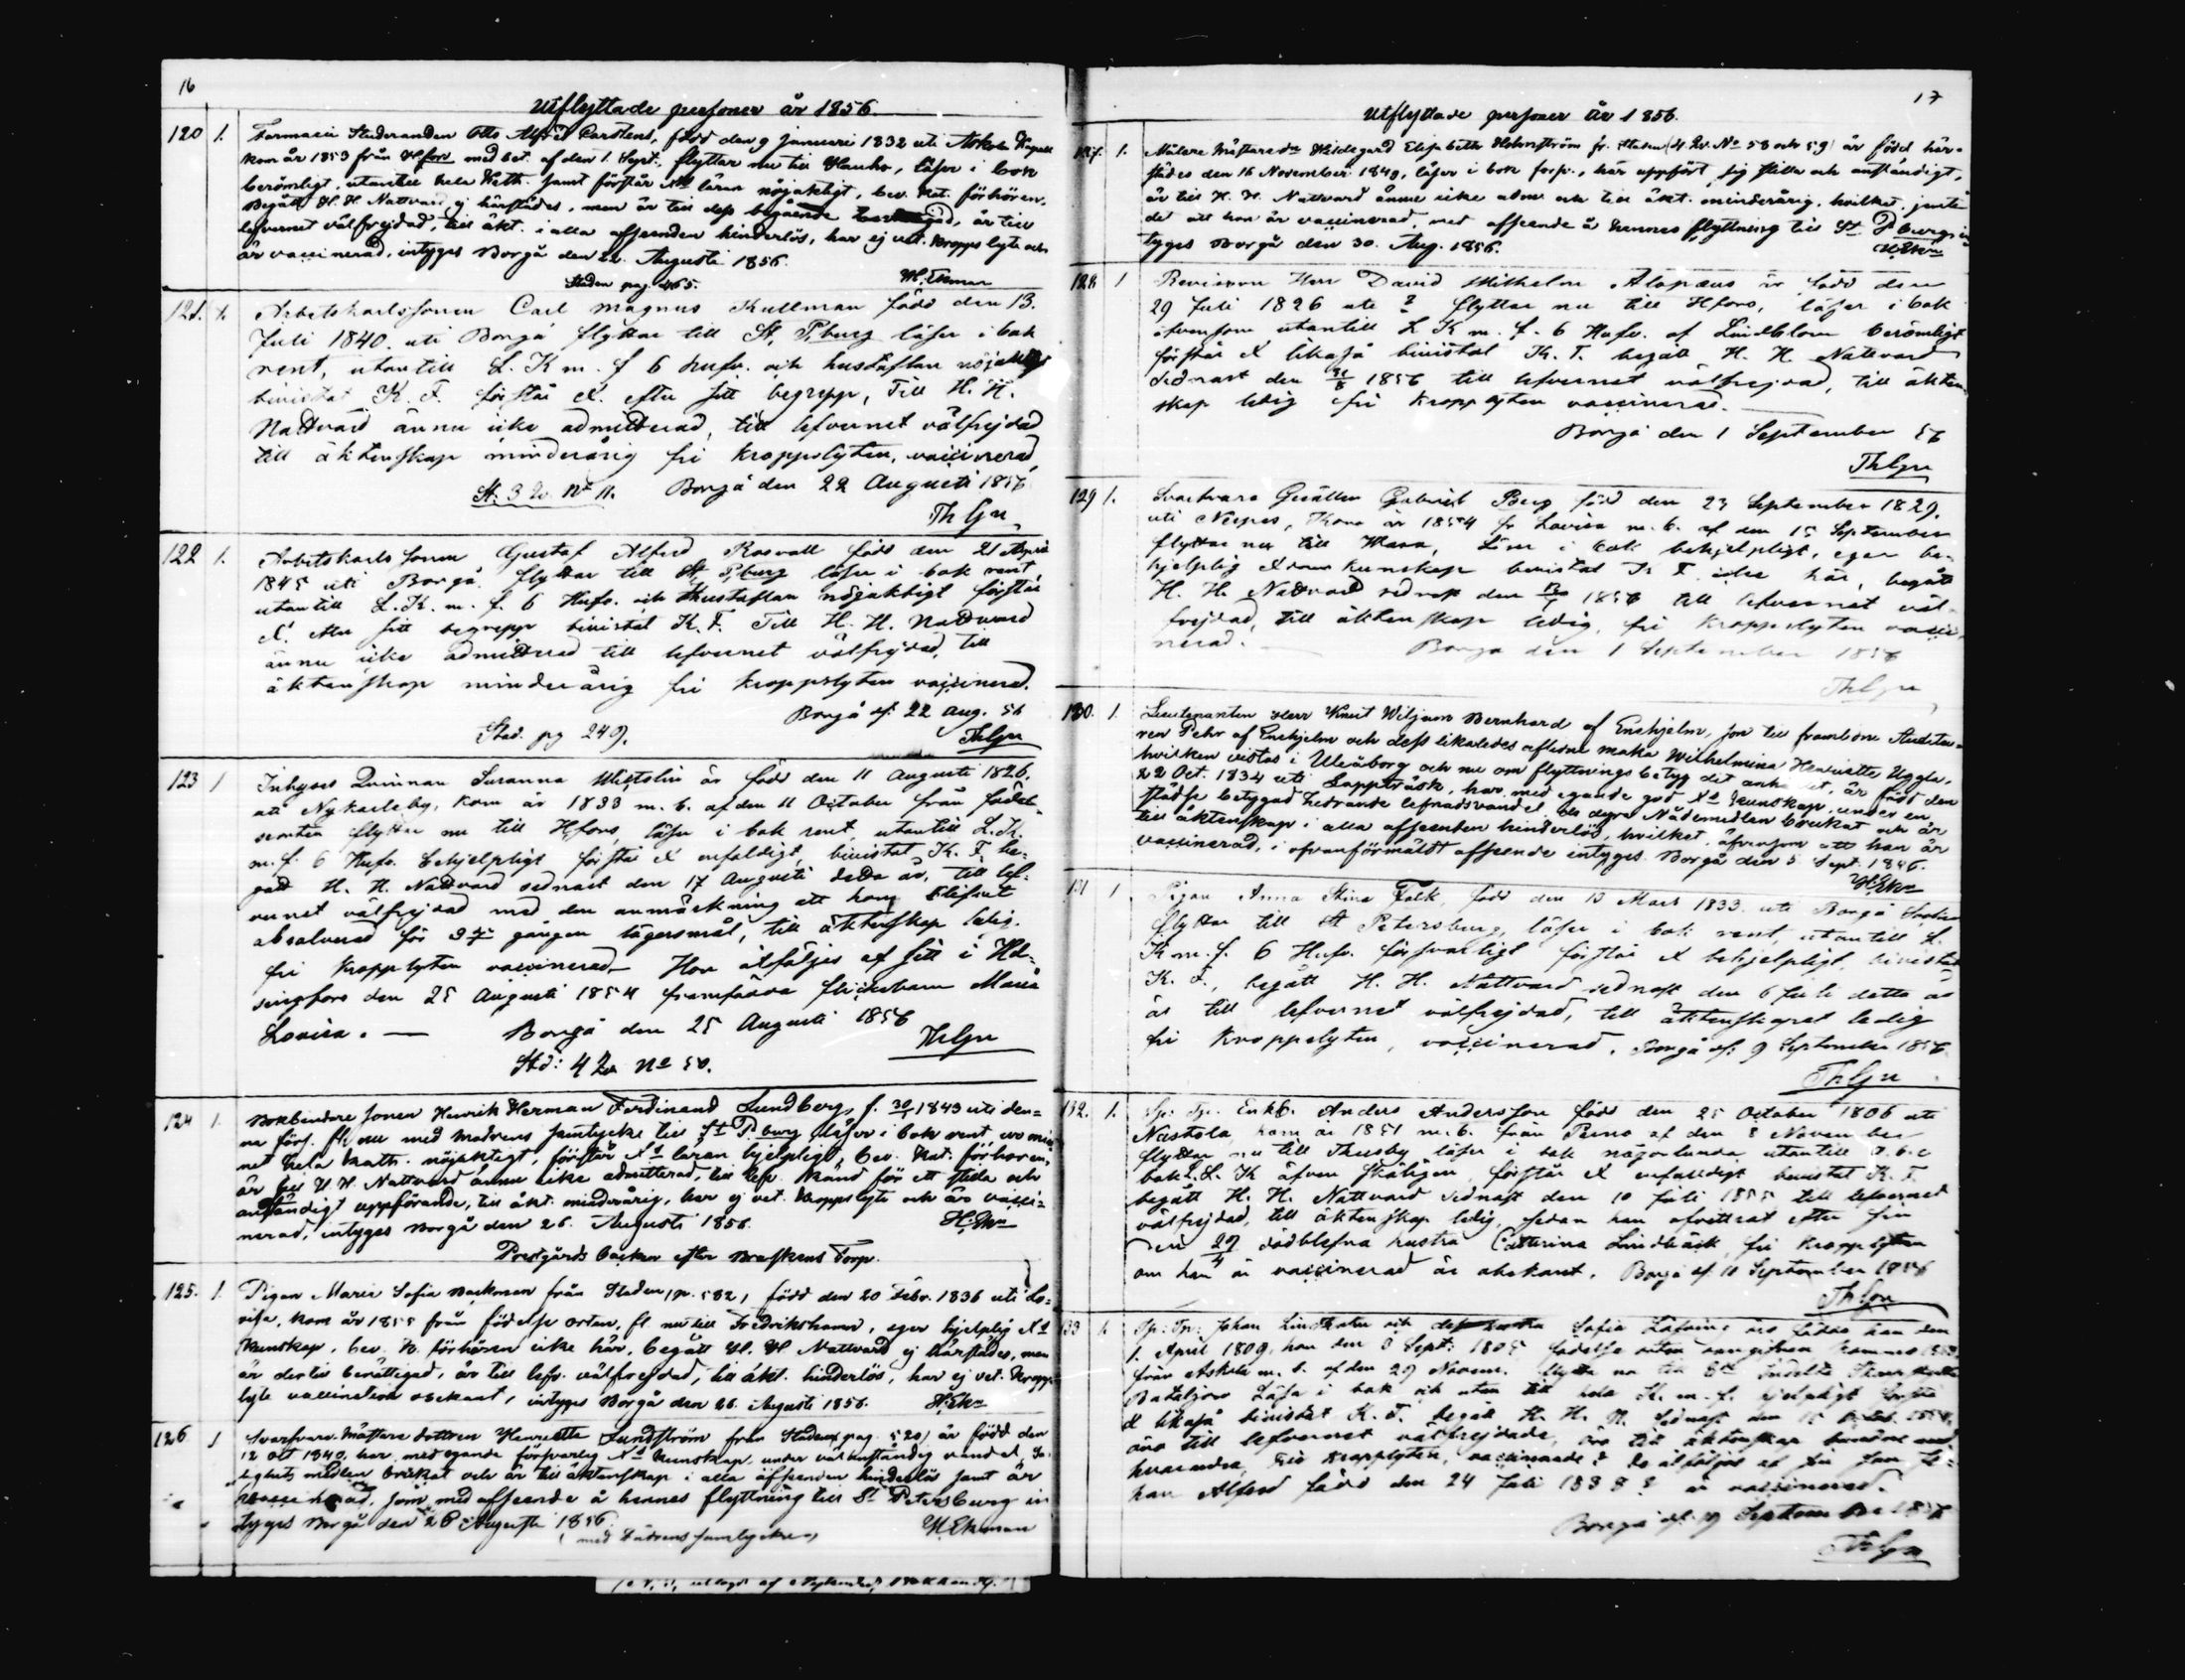 16
Utflyttade personer år 1856.
120 1. Farmacie Studeranden Otto Alfred Carstens, född den 9 Januari 1832 uti Askola Kapell
kom år 1853 från Hfors med bet. af den 1. Sept., flyttar nu till Hauho, läser i bok
berömligt, utantill hela Kath. samt förstår läran nöjaktigt, bev. Kat. förhören.
Begått H. H. Nattvard ej härstädes, men är till dess begående är till
lefvernet välfrejdad, till äkt. i alla afseenden hinderlös, har ej vet. kropps lyte och
är vaccinerad, intygas Borgå den 22. Augusti 1856.
Staden pag. 465. H. Ekman
121. 1. Arbetskarlssonen Carl Magnus Kullman född den 13.
Juli 1840. uti Borgå flyttar till St. P.burg läser i bok
rent, utantill L. K m. f 6 Hufv. och hustaflan nöjaktigt
bivistat K. F. förstår X. efter sitt begrepp, Till H. H.
Nattvard ännu icke admitterad, till lefvernet välfrejdad
till äktenskap minderårig fri kroppslyten, vaccinerad
St. 3 Qv. No 11. Borgå den 22 Augusti 1856
Th Gn
122 1. Arbetskarls sonen Gustaf Alfred Rosvall född den 21 April
1845 uti Borgå flyttar till St. P,burg läser i bok rent,
utantill L. K. m. f. 6 Hufv. och Hustaflan nöjaktigt förstår
X. efter sitt begrepp bivistat K. F. Till H. H. Nattvard
ännu icke admitterad till lefvernet välfrejdad, till
äktenskap minderårig fri kroppslyten vaccinerad.
Borgå d. 22 Aug. 56
Stad. pg 249. ThGn
123 1 Inhyses Qvinnan Susanna är född den 11 Augusti 1826.
uti Nykarleby, kom år 1833 m. b. af den 11 October från födel-
seorten flyttar nu till Hfors, läser i bok rent, utantill L. K.
m. f. 6 Hufv. behjelpligt förstår X enfaldigt, bivistat K. F. be-
gått H. H. Nattvard sednast den 17 Augusti detta år, till lef-
vernet välfrejdad med den anmärkning att hon blifvit
absolverad för gången lägersmål, till äktenskap ledig.
fri kroppslyten vaccinerad. Hon åtföljes af sitt i Hel-
singfors den 25 Augusti 1854 framfödda flickebarn Maria
Lovisa. — Borgå den 25 Augusti 1856
Std: 4 Qv No 50. ThGn
124 1. Bokbindare sonen Henrik Herman Ferdinand Lundberg, f. 1843 uti den-
na förs. fl. nu med modrens samtycke till St P.burg läser i bok rent, ur min
net hela kath. nöjaktigt, förstår läran hjelpligt, bev. Kat. förhören,
är till H. H. Nattvard ännu icke admitterad, till lefv. känd för ett stilla och
anständigt uppförande, till äkt. minderårig, har ej vet. kroppslyte och är vacci-
nerad, intygas Borgå den 26. Augusti 1856. H. Ekn
Prestgårds backen efter Braskens Torp.
125. 1. Pigan Maria Sofia Backman från Staden, p. 582, född den 20 Febr. 1836 uti Lo-
visa, kom år 1855 från födelse orten, fl. nu till Fredrikshamn, eger hjelplig
kunskap, bev. K. förhören icke här, begått H. H Nattvard ej härstädes, men
är dertill berättigad, är till lefv. välfrejdad, till äkt. hinderlös, har ej vet. kropps
lyte vaccination obekant, intygas Borgå den 26. Augusti 1856. H. Ekn
126 1 Svarfvare Mästare dottren Henriette Lundström från Staden pag. 520, är född den
12 Oct 1840, har, med egande försvarlig kunskap, under välanständig vandel, Sa
lighets medlen brukat och är till äktenskap i alla afseenden hinderlös samt är
vaccinerad, som med afseende å hennes flyttning till St Petersburg in
tygas Borgå den 26 Augusti 1856. H. Ekman
(med Fadrens samtycke)
17
Utflyttade personer år 1856.
127. 1. Målare Mästare dr Hildegard Elisabeth Holmström fr. Staden (4. Qv. No 58 och 59) är född här-
städes den 16 November 1840, läser i bok förs., har uppfört sig stilla och anständigt,
är till H. H. Nattvard ännu icke adm. och till äkt. minderårig, hvilket, jemte
det att hon är vaccinerad, med afseende å hennes flyttning till St P.burg in
tygas Borgå den 30. Aug. 1856. H. Ekn
128 1 Revisorn Herr David Wilhelm Alopæus är född den
29 Juli 1826 uti ? flyttar nu till Hfors, läser i bok
äfvensom utantill L K m. f. 6 Hufv. af Lindblom berömligt
förstår X likaså bivistat K. F. begått H. H. Nattvard
sednast den 1856 till lefvernet välfrejdad, till äkten
skap ledig fri kroppslyten vaccinerad.
Borgå den 1 September 56
ThGn
129 1. Svarfvare Gesällen Gabriel Berg född den 23 September 1829.
uti Nerpes, Kom år 1854 fr Lovisa m. b. af den 15 September
flyttar nu till Wasa, Läser i bok behjelpligt, eger be-
hjelplig kunskap bevistat K F. icke här, begått
H. H. Nattvard sednast den 1856 till lefvernet väl-
frejdad, till äktenskap ledig, fri kroppslyten vacci-
nerad. — Borgå den 1 September 1856
ThGn
130. 1. Lieutenanten Herr Knut Wiljam Bernhard af Enehjelm, son till framlidne Auditeu-
ren Pehr af Enehjelm och dess likaledes aflidne maka Wilhelmina Henriette Uggla,
hvilken vistas i Uleåborg och nu om flyttningsbetyg det anh är född den
22 Oct. 1834 uti Lappträsk, har, med egande god kunskap, under en
städse betygad hedrande lefnadsvandel de dyra Nådemedlen brukat och är
till äktenskap i alla afseenden hinderlös, hvilket, äfvensom att han är
vaccinerad, i ofvanförmäldt afseende intygas. Borgå den 5 Sept. 1846.
H. Ekn
131 1 Pigan Anna Stina Falk, född den 13 Mars 1833. uti Borgå Socken
flyttar till St Petersburg, läser i bok rent, utantill L.
K m. f. 6 Hufv. försvarligt förstår X behjelpligt, bivistat
K. F., begått H. H. Nattvard sednast den 6 Juli detta år
är till lefvernet välfrejdad, till äktenskapet ledig
fri kroppslyten, vaccinerad. Borgå d. 9 September 1856.
ThGn
132. 1. Sp. Tp. Enkl. Anders Andersson född den 25 October 1806 uti
Nastola, kom år 1851 m. b. från Perno af den 8 November
flyttar nu till Thusby läser i bok någorlunda utantill A. b. c
bok L. K äfven skäligen, förstår X enfaldigt bevistat K. F.
begått H. H. Nattvard sednast den 10 Juli 1855 till lefvernet
välfrejdad, till äktenskap ledig, sedan han afvittrat efter sin
den dödblefna hustru Catharina Lindbäck, fri kroppslyten
om han är vaccinerad är obekant. Borgå d. 11 September 1856
ThGn
133 1. Sp: Tp: Johan och Sofia äro födde han den
1. April 1809, hon den 3 Sept: 1805 födelse orten komne
från Askola m. b. af den 29 Novem. flytta nu till Indelta
Bataljon Läsa i bok och utan till hela K. m. f. hjelpligt förstå
X likaså bivistat K. F. begått H. H. N. sednast den
äro till lefvernet välfrejdade, äro till äktenskap
hvarandra, fria kroppslyten, vaccinerade? De åtföljes af sin son Jo-
han Alfred född den 24 Juli 1838 är vaccinerad.
Borgå d. 19 September 1856
ThGn